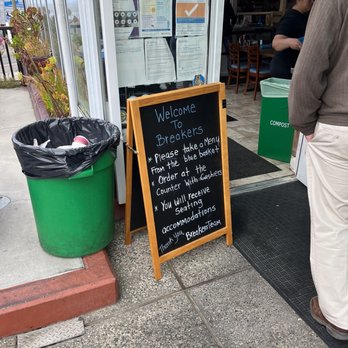 Welcome
To
Breakers
* Please take a Menu
From the blue basket
* Order at the
Counter With Cashiers
* You will receive
Seating
accommodations
Thank you,
Breakers Team
COMPOST